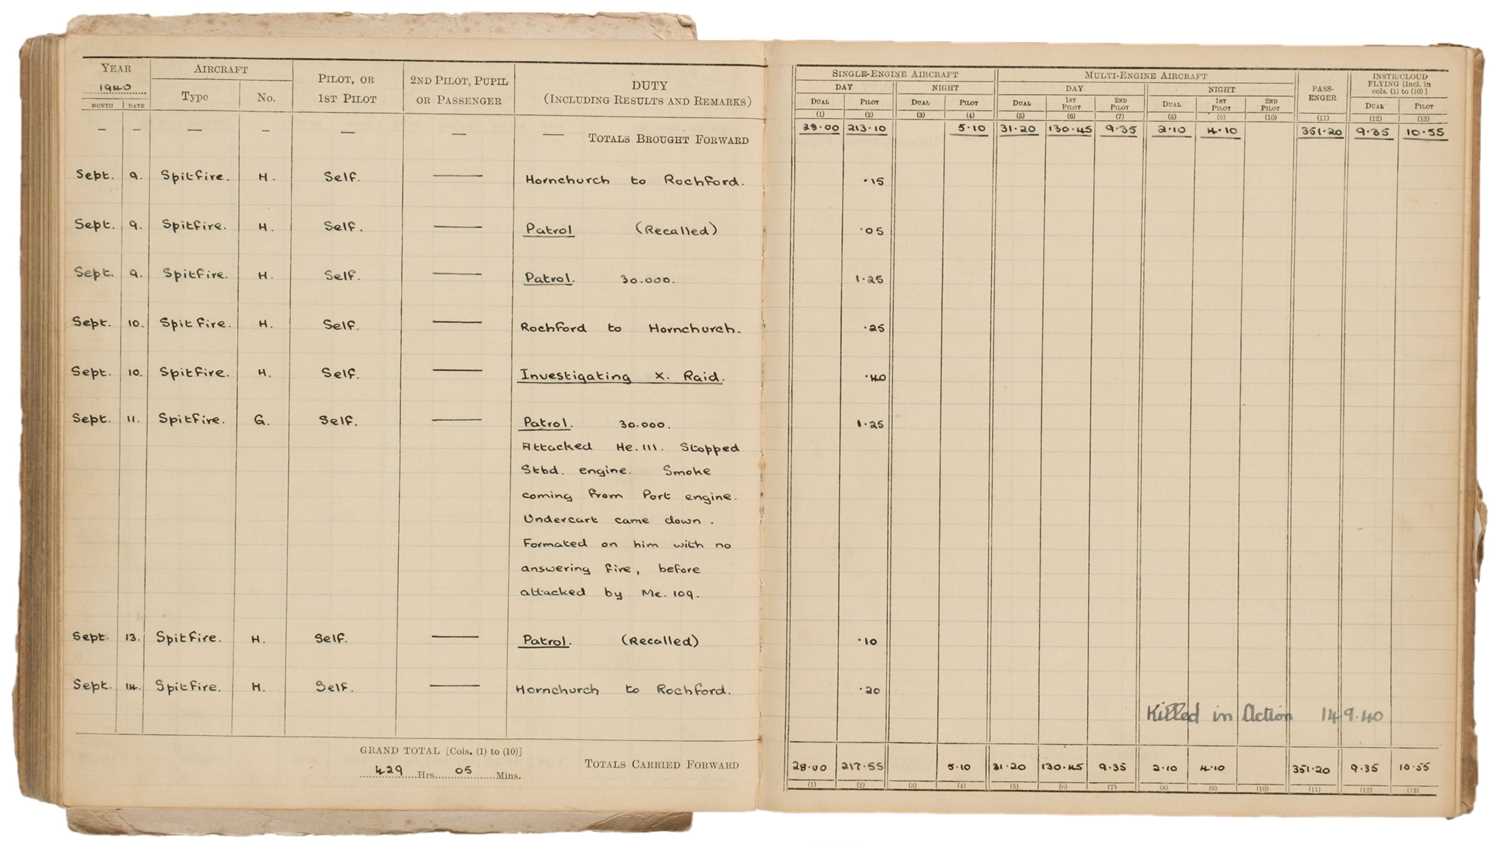 YEAR AIRCRAFT PILOT, OR 1ST PILOT 2ND PILOT, PUPIL OR PASSENGER DUTY (INCLUDING RESULTS AND REMARKS) SINGLE-ENGINE AIRCRAFT MULTI-ENGINE AIRCRAFT PASS-ENGER INSTR/CLOUD FLYING [Incl. in cols. (1) to (10)]
1940 Type No. DAY NIGHT DAY NIGHT
MONTH DATE DUAL PILOT DUAL PILOT DUAL 1ST PILOT 2ND PILOT DUAL 1ST PILOT 2ND PILOT DUAL PILOT
(1) (2) (3) (4) (5) (6) (7) (8) (9) (10) (11) (12) (13)
— — — — — — — TOTALS BROUGHT FORWARD 28.00 213.10 5.10 31.20 130.45 9.35 2.10 4.10 351.20 9.35 10.55
Sept. 9. Spitfire. H. Self. — Hornchurch to Rochford. .15
Sept. 9. Spitfire. H. Self. — Patrol (Recalled) .05
Sept. 9. Spitfire. H. Self. — Patrol. 30.000. 1.25
Sept. 10. Spitfire. H. Self. — Rochford to Hornchurch. .25
Sept. 10. Spitfire. H. Self. — Investigating X. Raid. .40
Sept. 11. Spitfire. G. Self. — Patrol. 30.000. 1.25
Attacked He.111. Stopped
Stbd. engine. Smoke
coming from Port engine.
Undercart came down.
Formated on him with no
answering fire, before
attacked by Me.109.
Sept. 13. Spitfire. H. Self. — Patrol. (Recalled) .10
Sept. 14. Spitfire. H. Self. — Hornchurch to Rochford. .20
Killed in Action 14.9.40
GRAND TOTAL [Cols. (1) to (10)]
429 Hrs. 05 Mins. TOTALS CARRIED FORWARD 28.00 217.55 5.10 31.20 130.45 9.35 2.10 4.10 351.20 9.35 10.55
(1) (2) (3) (4) (5) (6) (7) (8) (9) (10) (11) (12) (13)